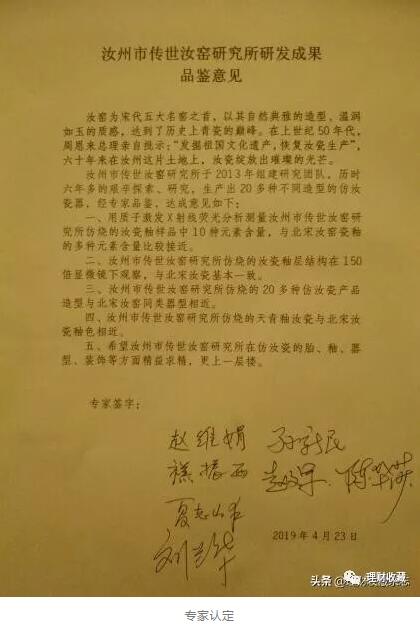 汝州市传世汝窑研究所研发成果
品鉴意见
汝窑为宋代五大名窑之首，以其自然典雅的造型、温润
如玉的质感，达到了历史上青瓷的巅峰。在上世纪50年代，
周恩来总理亲自批示：“发掘祖国文化遗产，恢复汝瓷生产”，
六十年来在汝州这片土地上，汝瓷绽放出璀璨的光芒。
汝州市传世汝窑研究所于2013年组建研究团队，历时
六年多的艰辛探索、研究，生产出20多种不同造型的仿汝
瓷器，经专家品鉴，达成意见如下：
一、用质子激发X射线荧光分析测量汝州市传世汝窑研
究所仿烧的汝瓷釉样品中10种元素含量，与北宋汝窑瓷釉
的多种元素含量比较接近。
二、汝州市传世汝窑研究所仿烧的汝瓷釉层结构在150
倍显微镜下观察，与北宋汝瓷基本一致。
三、汝州市传世汝窑研究所仿烧的20多种仿汝瓷产品
造型与北宋汝窑同类器型相近。
四、汝州市传世汝窑研究所仿烧的天青釉汝瓷与北宋汝
瓷釉色相近。
五、希望汝州市传世汝窑研究所在仿汝瓷的胎、釉、器
型、装饰等方面精益求精，更上一层楼。
专家签字：
赵维娟 孙新民
禚振西
2019年4月23日
头条 理财收藏
专家认定